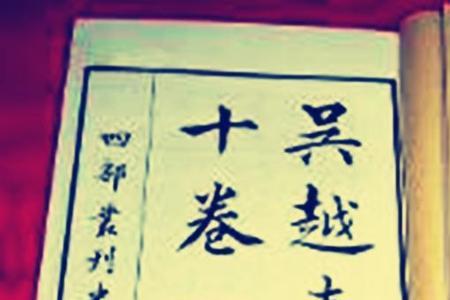 吳越
十卷
四部叢刊